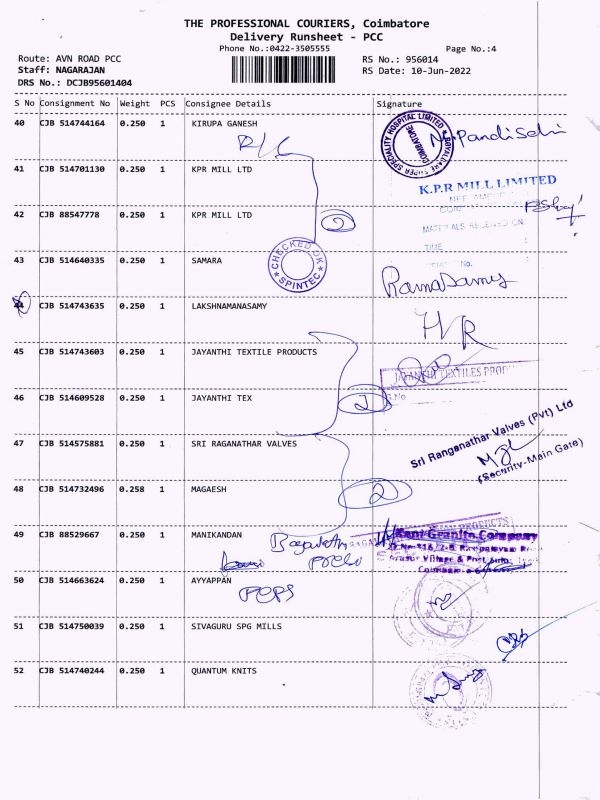 THE PROFESSIONAL COURIERS, Coimbatore
Delivery Runsheet - PCC
Phone No.:0422-3505555
Page No.:4
Route: AVN ROAD PCC
RS No.: 956014
Staff: NAGARAJAN
RS Date: 10-Jun-2022
DRS No.: DCJB95601404
S No Consignment No Weight PCS Consignee Details Signature
40 CJB 514744164 0.250 1 KIRUPA GANESH
SUPER SPECIALITY HOSPITAL LIMITED
COIMBATORE
41 CJB 514701130 0.250 1 KPR MILL LTD
K.P.R MILL LIMITED
42 CJB 88547778 0.250 1 KPR MILL LTD
2
MATERIALS RECEIVED ON.
TIME :
43 CJB 514640335 0.250 1 SAMARA
CHECKED OK
SPINTEC
No.
Ramasamy
44 CJB 514743635 0.250 1 LAKSHNAMANASAMY
45 CJB 514743603 0.250 1 JAYANTHI TEXTILE PRODUCTS
JAYANTHI TEXTILES PROD
46 CJB 514609528 0.250 1 JAYANTHI TEX
2
S.No
47 CJB 514575881 0.250 1 SRI RAGANATHAR VALVES
Sri Ranganathar Valves (Pvt) Ltd
(Security-Main Gate)
48 CJB 514732496 0.258 1 MAGAESH
2
49 CJB 88529667 0.250 1 MANIKANDAN
PRODUCTS
Kani Granito Company
50 CJB 514663624 0.250 1 AYYAPPAN
51 CJB 514750039 0.250 1 SIVAGURU SPG MILLS
52 CJB 514740244 0.250 1 QUANTUM KNITS